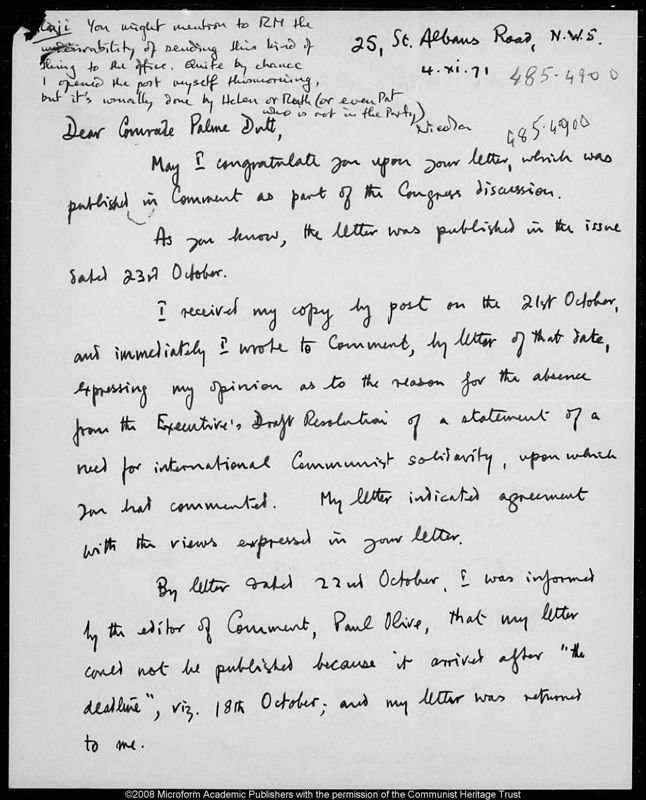 Raji You might mention to RM the
undesirability of sending this kind of
thing to the office. Quite by chance
I opened the post myself this morning,
but it's usually done by Helen or Ruth (or even Pat
who is not in the Party)
Nicolon
25, St. Albans Road, N.W.5.
4.xi.71
485-4900
485-4900
Dear Comrade Palme Dutt,
May I congratulate you upon your letter, which was
published in Comment as part of the Congress discussion.
As you know, the letter was published in the issue
dated 23rd October.
I received my copy by post on the 21st October,
and immediately I wrote to Comment, by letter of that date,
expressing my opinion as to the reason for the absence
from the Executive's Draft Resolution of a statement of a
need for international Communist solidarity, upon which
you had commented. My letter indicated agreement
with the views expressed in your letter.
By letter dated 22nd October, I was informed
by the editor of Comment, Paul Olive, that my letter
could not be published because it arrived after "the
deadline", viz. 18th October; and my letter was returned
to me.
©2008 Microform Academic Publishers with the permission of the Communist Heritage Trust